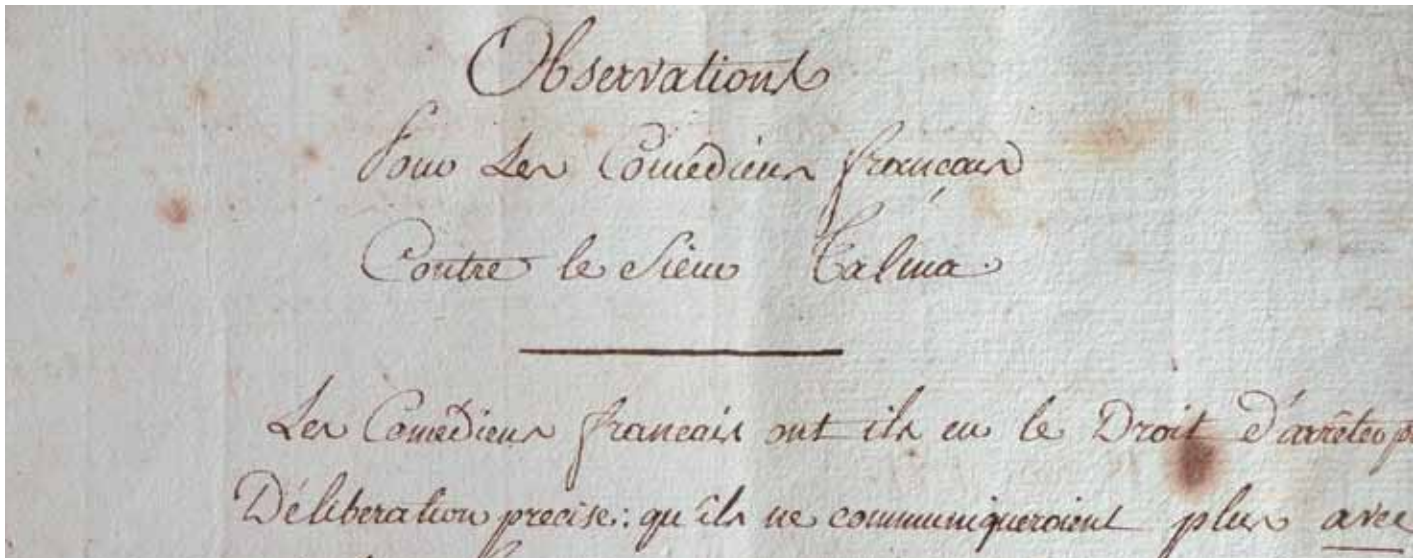 Observations
Pour Les Comédiens français
Contre le Sieur Talma.
Les Comediens francais ont ils eu le Droit d'arrêter
Déliberation precise: qu'ils ne communiqueroient plus avec